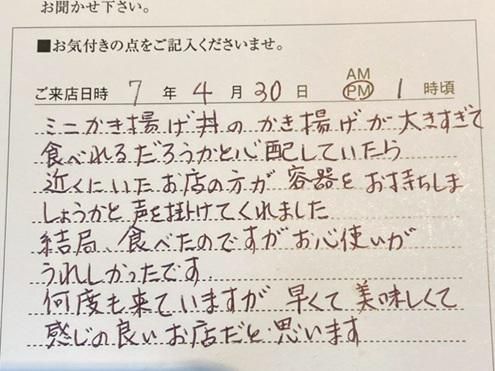 お聞かせ下さい。
■お気付きの点をご記入くださいませ。
ご来店日時 7 年 4 月 30 日 AM PM 1 時頃
ミニかき揚げ丼のかき揚げが大きすぎて
食べれるだろうかと心配していたら
近くにいたお店の方が容器をお持ちしま
しょうかと声を掛けてくれました
結局、食べたのですがお心使いが
うれしかったです.
何度も来ていますが早くて美味しくて
感じの良いお店だと思います